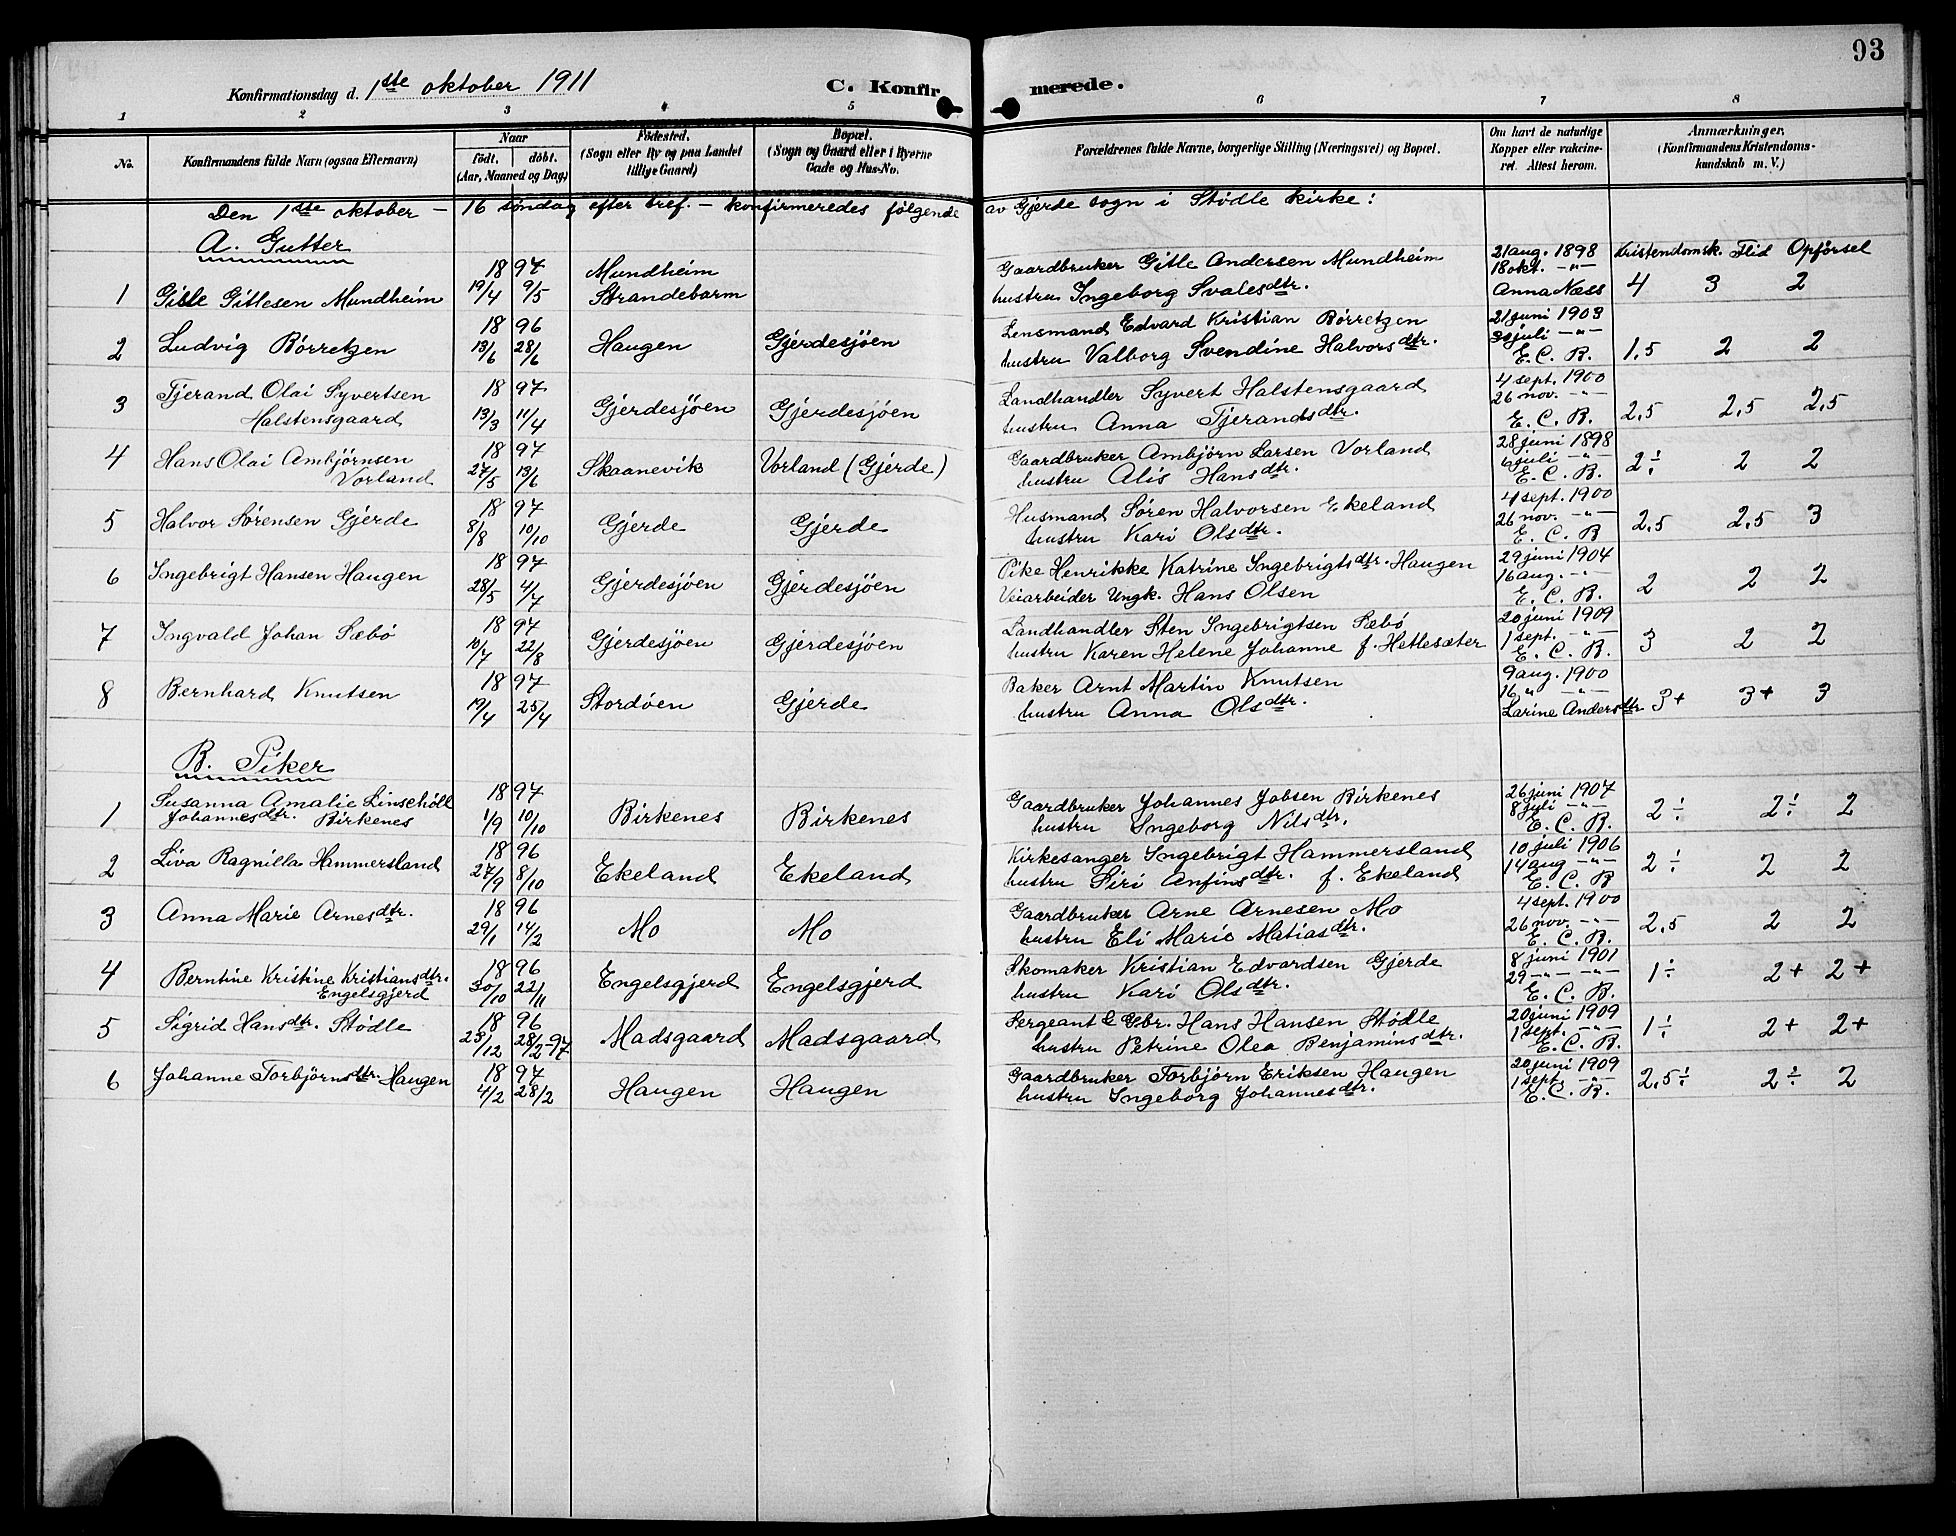 93
Konfirmationsdag d. 1ste oktober 1911
C. Konfirmerede.
1 2 3 4 5 6 7 8
No.
Konfirmandens fulde Navn (ogsaa Efternavn)
Naar
født. døbt.
(Aar, Maaned og Dag)
Fødested.
(Sogn eller By og paa Landet
tillige Gaard)
Bopæl.
(Sogn og Gaard eller i Byerne
Gade og Hus-No.
Forældrenes fulde Navne, borgerlige Stilling (Næringsvei) og Bopæl.
Om havt de naturlige
Kopper eller vakcine-
ret. Attest herom.
Anmærkninger.
(Konfirmandens Kristendoms-
kundskab m. V.)
Den 1ste oktober - 16 søndag efter tref. - konfirmeredes følgende av Gjerde sogn i Stødle kirke:
A. Gutter
Kristendomsk. Flid Opførsel
18 97 Mundheim Gaardbruker Gitle Andersen Mundheim 21 aug. 1898
18 okt. -"-
1 Gitle Gitlesen Mundheim 19/4 9/5 Strandebarm hustru Ingeborg Svalesdtr. Anna Næss 4 3 2
18 96 Lensmand Edvard Kristian Børretzen 21 juni 1903
2 Ludvig Børretzen 13/6 28/6 Haugen Gjerdesjøen hustru Valborg Svendine Halvorsdtr. juli -"-
E. C. B. 1,5 2 2
3 Tjerand Olai Syvertsen 18 97 Gjerdesjøen Gjerdesjøen Landhandler Syvert Halstensgaard 4 sept. 1900
Halstensgaard 13/3 11/4 hustru Anna Tjerandsdtr. 26 nov. -"-
E. C. B. 2,5 2,5 2,5
4 Hans Olai Ambjørnsen 18 97 Gaardbruker Ambjørn Larsen Vorland 28 juni 1898
Vorland 27/5 13/6 Skaanevik Vorland (Gjerde) hustru Alis Hansdtr. 6 juli -"-
E. C. B. 2÷ 2 2
5 Halvor Sørensen Gjerde 18 97 Husmand Søren Halvorsen Ekeland 4 sept. 1900
8/8 10/10 Gjerde Gjerde hustru Kari Olsdtr. 26 nov. -"-
E. C. B 2,5 2,5 3
6 Ingebrigt Hansen Haugen 18 97 Pike Henrikke Katrine Ingebrigtsdtr. Haugen 29 juni 1904
28/5 4/7 Gjerdesjøen Gjerdesjøen Veiarbeider Ungk. Hans Olsen 16 aug. -"-
E. C. B. 2 2 2
7 Ingvald Johan Sæbø 18 97 Landhandler Sten Ingebrigtsen Sæbø 20 juni 1909
10/7 22/8 Gjerdesjøen Gjerdesjøen hustru Karen Helene Johanne f. Hetlesæter 1 sept. -"-
E. C. B. 3 2 2
8 Bernhard Knutsen 18 97 Baker Arnt Martin Knutsen 9 aug. 1900
19/4 25/4 Stordøen Gjerde hustru Anna Olsdtr. 16 " -"-
Larine Andersdtr 3+ 3+ 3
B. Piker
Susanna Amalie Linschöll 18 97 Gaardbruker Johannes Jobsen Birkenes 26 juni 1907
1 Johannesdtr. Birkenes 1/9 10/10 Birkenes Birkenes hustru Ingeborg Nilsdtr. 8 juli -"-
E. C. B. 2÷ 2÷ 2
2 Liva Ragnilla Hammersland 18 96 Kirkesanger Ingebrigt Hammersland 10 juli 1906
27/9 8/10 Ekeland Ekeland hustru Siri Anfinsdtr. f. Ekeland 14 aug -"-
E. C. B 2÷ 2 2
3 Anna Marie Arnesdtr. 18 96 Gaardbruker Arne Arnesen Mo 4 sept. 1900
29/1 14/2 Mo Mo hustru Eli Marie Matiasdtr. 26 nov. -"-
E. C. B. 2,5 2 2
4 Berntine Kristine Kristiansdtr. 18 96 Skomaker Kristian Edvardsen Gjerde 8 juni 1901
Engelsgjerd 30/10 22/11 Engelsgjerd Engelsgjerd hustru Kari Olsdtr. 29 -"- -"-
E. C. B. 1÷ 2+ 2+
5 Sigrid Hansdtr. Stødle 18 96 Sergeant & Gbr. Hans Hansen Stødle 20 juni 1909
23/12 28/2-97 Madsgaard Madsgaard hustru Petrine Olea Benjaminsdtr. 1 sept. -"-
E. C. B. 1÷ 2+ 2+
6 Johanne Torbjørnsdtr. Haugen 18 97 Gaardbruker Torbjørn Eriksen Haugen 20 juni 1909
4/2 28/2 Haugen Haugen hustru Ingeborg Johannesdtr. 1 sept. -"-
E. C. B. 2,5÷ 2÷ 2